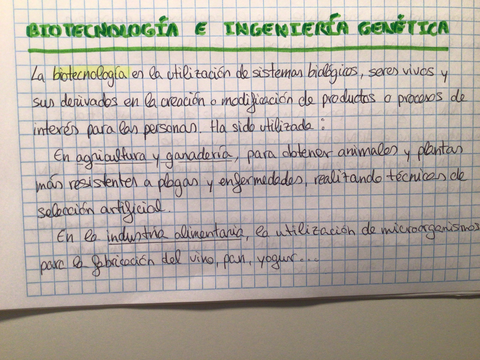 BIOTECNOLOGÍA E INGENIERÍA GENÉTICA
La biotecnología es la utilización de sistemas biológicos, seres vivos y
sus derivados en la creación o modificación de productos o procesos de
interés para las personas. Ha sido utilizada:
En agricultura y ganadería, para obtener animales y plantas
más resistentes a plagas y enfermedades, realizando técnicas de
selección artificial.
En la industria alimentaria, la utilización de microorganismos
para la fabricación del vino, pan, yogur...